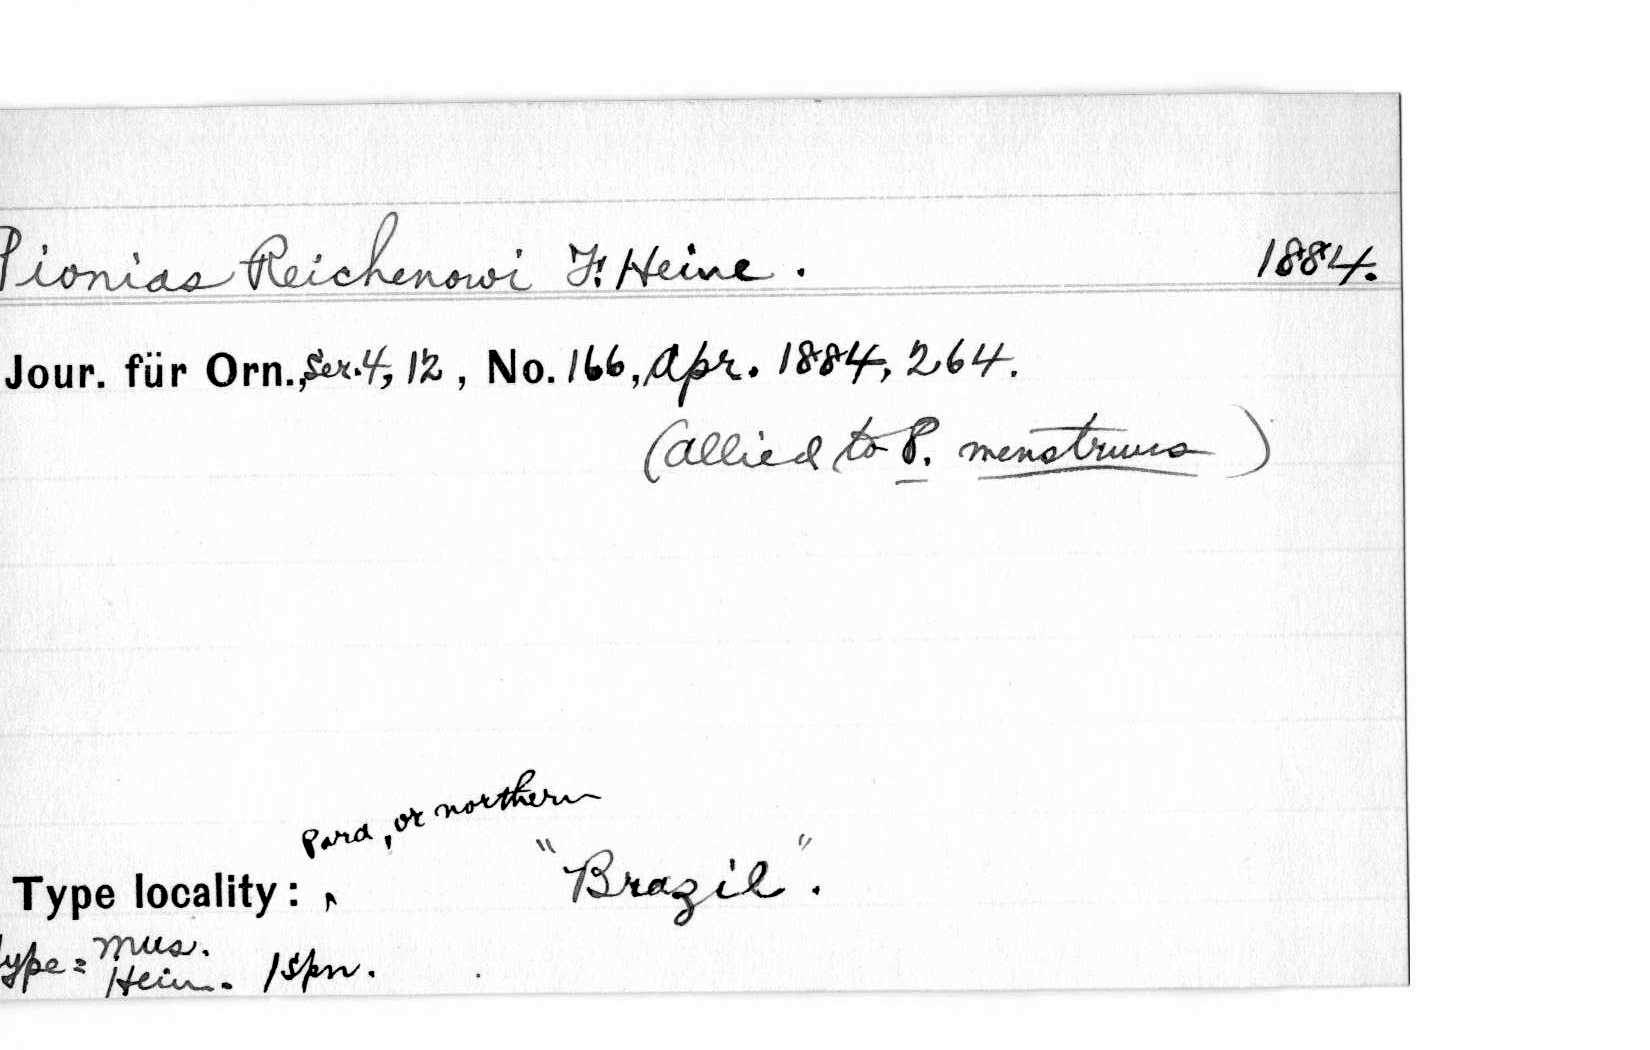 Pionias Reichenowi F. Heine. 1884.
Jour. für Orn., Ser. 4, 12, No. 166, Apr. 1884, 264.
(allied to P. menstruus)
Para, or northern
Type locality: ^ "Brazil".
Type = Mus.
Hein. 1 spn.